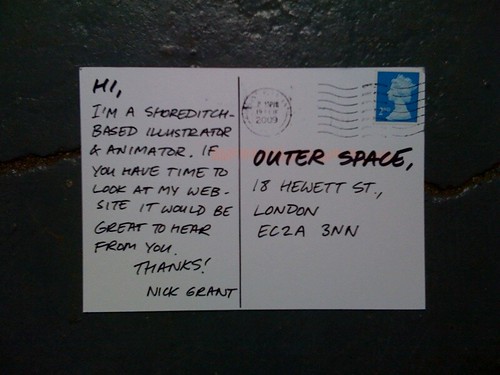 HI,
I'M A SHOREDITCH-
BASED ILLUSTRATOR
& ANIMATOR. IF
YOU HAVE TIME TO
LOOK AT MY WEB-
SITE IT WOULD BE
GREAT TO HEAR
FROM YOU.
THANKS!
NICK GRANT
2009
2nd
OUTER SPACE,
18 HEWETT ST.,
LONDON
EC2A 3NN